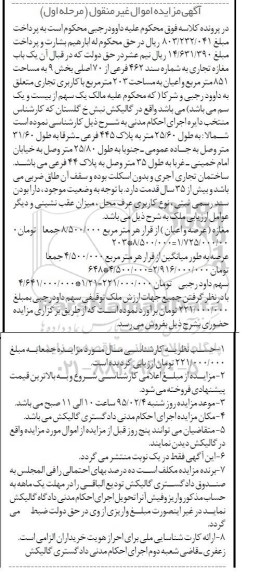 آگهی مزایده اموال غیر منقول (مرحله اول)
در پرونده کلاسه فوق محکوم علیه داوود رجبی محکوم است به پرداخت
مبلغ ۸۰۳/۲۳۲/۰۴۱ ریال در حق محکوم له ابراهیم بشارت و پرداخت
مبلغ ۱۴/۶۳۱/۳۹۰ ریال نیم عشر در حق دولت که در قبال آن یک باب
مغازه تجاری به شماره سند ۴۶۲ فرعی از ۷۰ اصلی بخش ۹ به مساحت
۸۵۱ متر مربع و اعیان به مساحت ۲۰۳ متر مربع با کاربری تجاری متعلق
به داوود رجبی و شرکا (که محکوم علیه مالک یک سهم از بیست و یک
سهم می باشد) می باشد واقع در گالیکش نبش خ گلستان که کارشناس
منتخب دایره اجرای احکام مدنی به شرح ذیل کارشناسی نموده است
شمالا: به طول ۲۵/۶۰ متر به پلاک ۴۴۵ فرعی -شرقا به طول ۳۱/۶۰
متر وصل به جاده عمومی -جنوبا به طول ۲۵/۸۰ متر وصل به خیابان
امام خمینی -غربا به طول ۳۵ متر وصل به پلاک ۴۴ فرعی می باشد.
ساختمان تجاری آجری و بدون اسکلت بوده و سقف آن طاق ضربی می
باشد و بیش از ۳۵ سال قدمت دارد. با توجه به وضعیت موجود، دارا بودن
سند رسمی ثبتی، نوع کاربری عرف محل، میزان عقب نشینی و دیگر
عوامل ارزیابی ملک به شرح ذیل می باشد.
مغازه (عرصه و اعیان) از قرار هر متر مربع ۸/۵۰۰/۰۰۰ جمعا تومان
۲۰۳*۸/۵۰۰/۰۰۰=۱/۷۲۵/۰۰۰/۰۰۰
عرصه به طور میانگین از قرار هر متر مربع ۴/۵۰۰/۰۰۰ جمعا
تومان ۲/۹۱۶/۰۰۰/۰۰۰=۴/۵۰۰/۰۰۰*۶۴۸
سهم داود رجبی تومان ۲۲۱/۰۰۰/۰۰۰=۱/۲۱*۴/۶۴۱/۰۰۰/۰۰۰
با در نظر گرفتن جمیع جهات ارزش ملک توقیفی سهم داود رجبی بمبلغ
۲۲۱/۰۰۰/۰۰۰ تومان برآورد نموده است که از طریق برگزاری مزایده
حضوری بشرح ذیل بفروش می رسد.
۱-حسب نظریه کارشناسی مال مورد مزایده جمعا به مبلغ
۲۲۱/۰۰۰/۰۰۰ تومان ارزیابی گردیده است.
۲-مزایده از مبلغ اعلامی کارشناسی شروع و به بالاترین قیمت
پیشنهادی فروخته می شود.
۳-موعد مزایده روز شنبه ۹۵/۰۲/۴ ساعت ۱۰ الی ۱۱ صبح می باشد.
۴-مکان مزایده اجرای احکام مدنی دادگستری گالیکش می باشد.
۵-متقاضیان می توانند پنج روز قبل از مزایده از اموال مورد مزایده واقع
در گالیکش دیدن نمایند.
۶-این آگهی فقط در یک نوبت منتشر می گردد.
۷-برنده مزایده مکلف است ده درصد بهای احتمالی را فی المجلس به
صندوق دادگستری گالیکش تودیع الباقی را در مهلت یک ماهه به
حساب مذکور واریز و فیش آنرا تحویل اجرای احکام مدنی دادگاه گالیکش
نماید در غیر اینصورت مبلغ واریزی از وی در حق دولت ضبط می
گردد.
۸-ارائه کارت شناسایی ملی برای احراز هویت خریداران الزامی است.
زعفری-قاضی شعبه دوم اجرای احکام مدنی دادگستری گالیکش